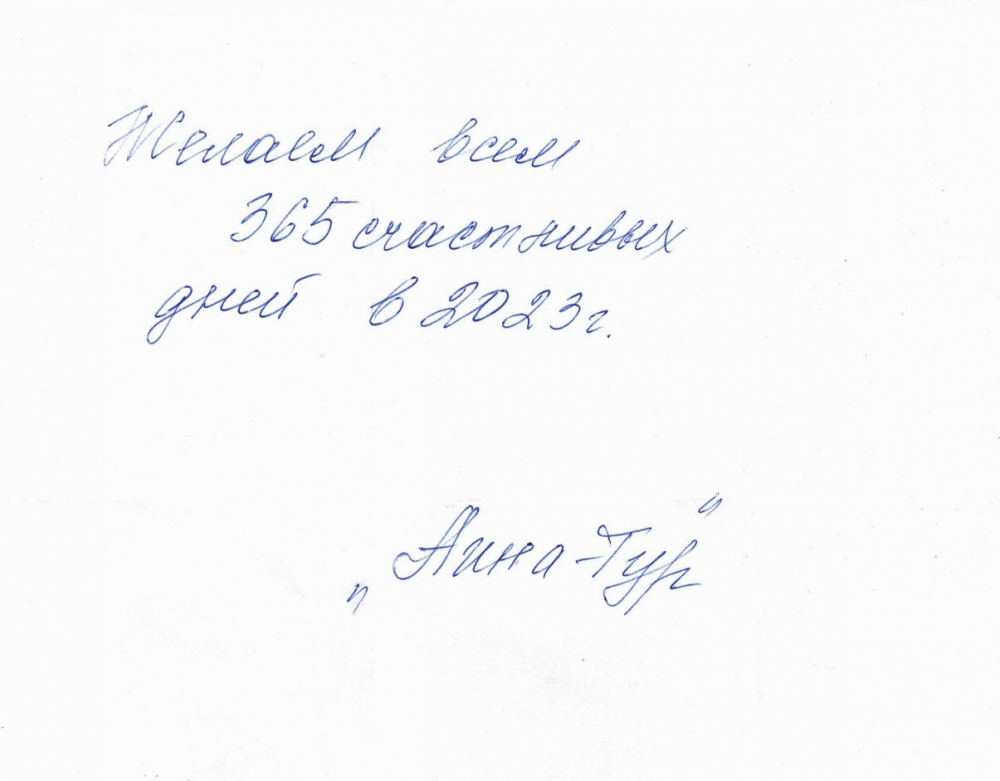 Желаем всем
365 счастливых
дней в 2023 г.
„Анна-Тур"